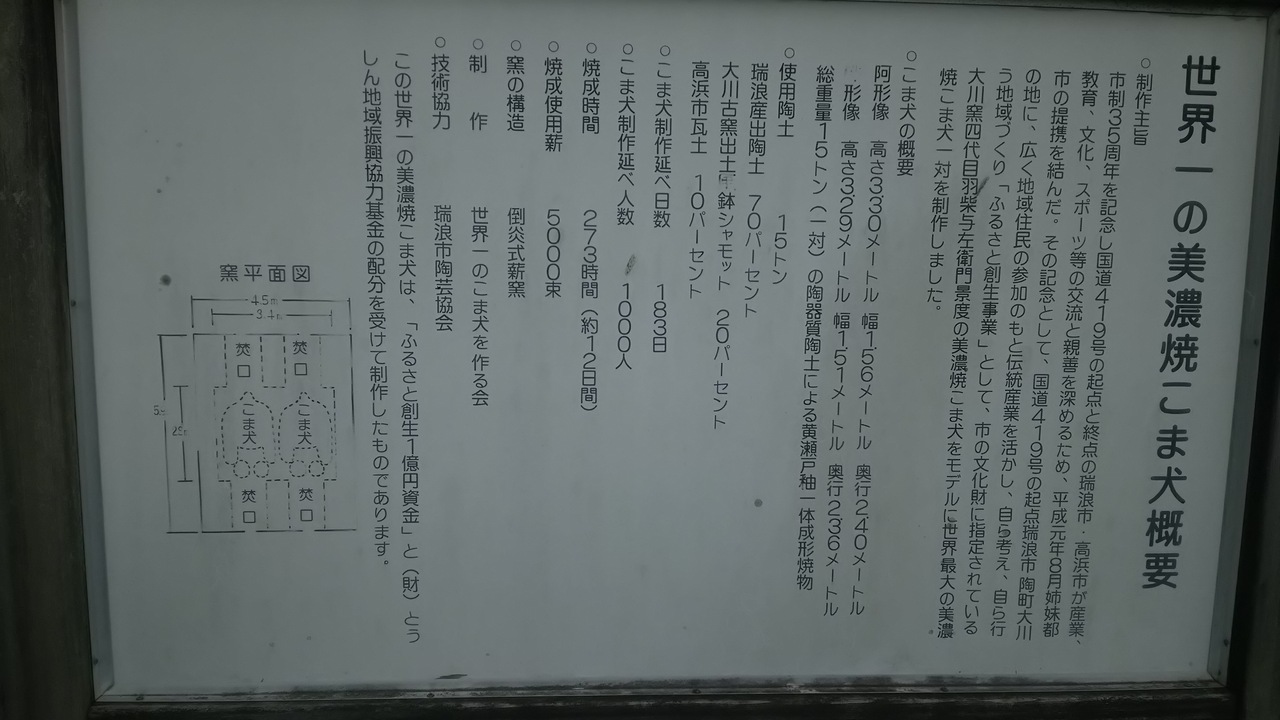 世界一の美濃焼こま犬概要
○制作主旨
市制35周年を記念し国道419号の起点と終点の瑞浪市・高浜市が産業、
教育、文化、スポーツ等の交流と親善を深めるため、平成元年8月姉妹都
市の提携を結んだ。その記念として、国道419号の起点瑞浪市陶町大川
の地に、広く地域住民の参加のもと伝統産業を活かし、自ら考え、自ら行
う地域づくり「ふるさと創生事業」として、市の文化財に指定されている
大川窯四代目羽柴与左衛門景度の美濃焼こま犬をモデルに世界最大の美濃
焼こま犬一対を制作しました。
○こま犬の概要
阿形像 高さ3.30メートル 幅1.56メートル 奥行2.40メートル
形像 高さ3.29メートル 幅1.51メートル 奥行2.36メートル
総重量15トン(一対)の陶器質陶土による黄瀬戸釉一体成形焼物
○使用陶土 15トン
瑞浪産出陶土 70パーセント
大川古窯出土鉢シャモット 20パーセント
高浜市瓦土 10パーセント
○こま犬制作延べ日数 183日
○こま犬制作延べ人数 1000人
○焼成時間 273時間(約12日間)
○焼成使用薪 5000束
○窯の構造 倒炎式薪窯
○制作 世界一のこま犬を作る会
○技術協力 瑞浪市陶芸協会
この世界一の美濃焼こま犬は、「ふるさと創生1億円資金」と(財)とう
しん地域振興協力基金の配分を受けて制作したものであります。
窯平面図
4.5m
3.4m
焚口
焚口
こま犬
こま犬
焚口
焚口